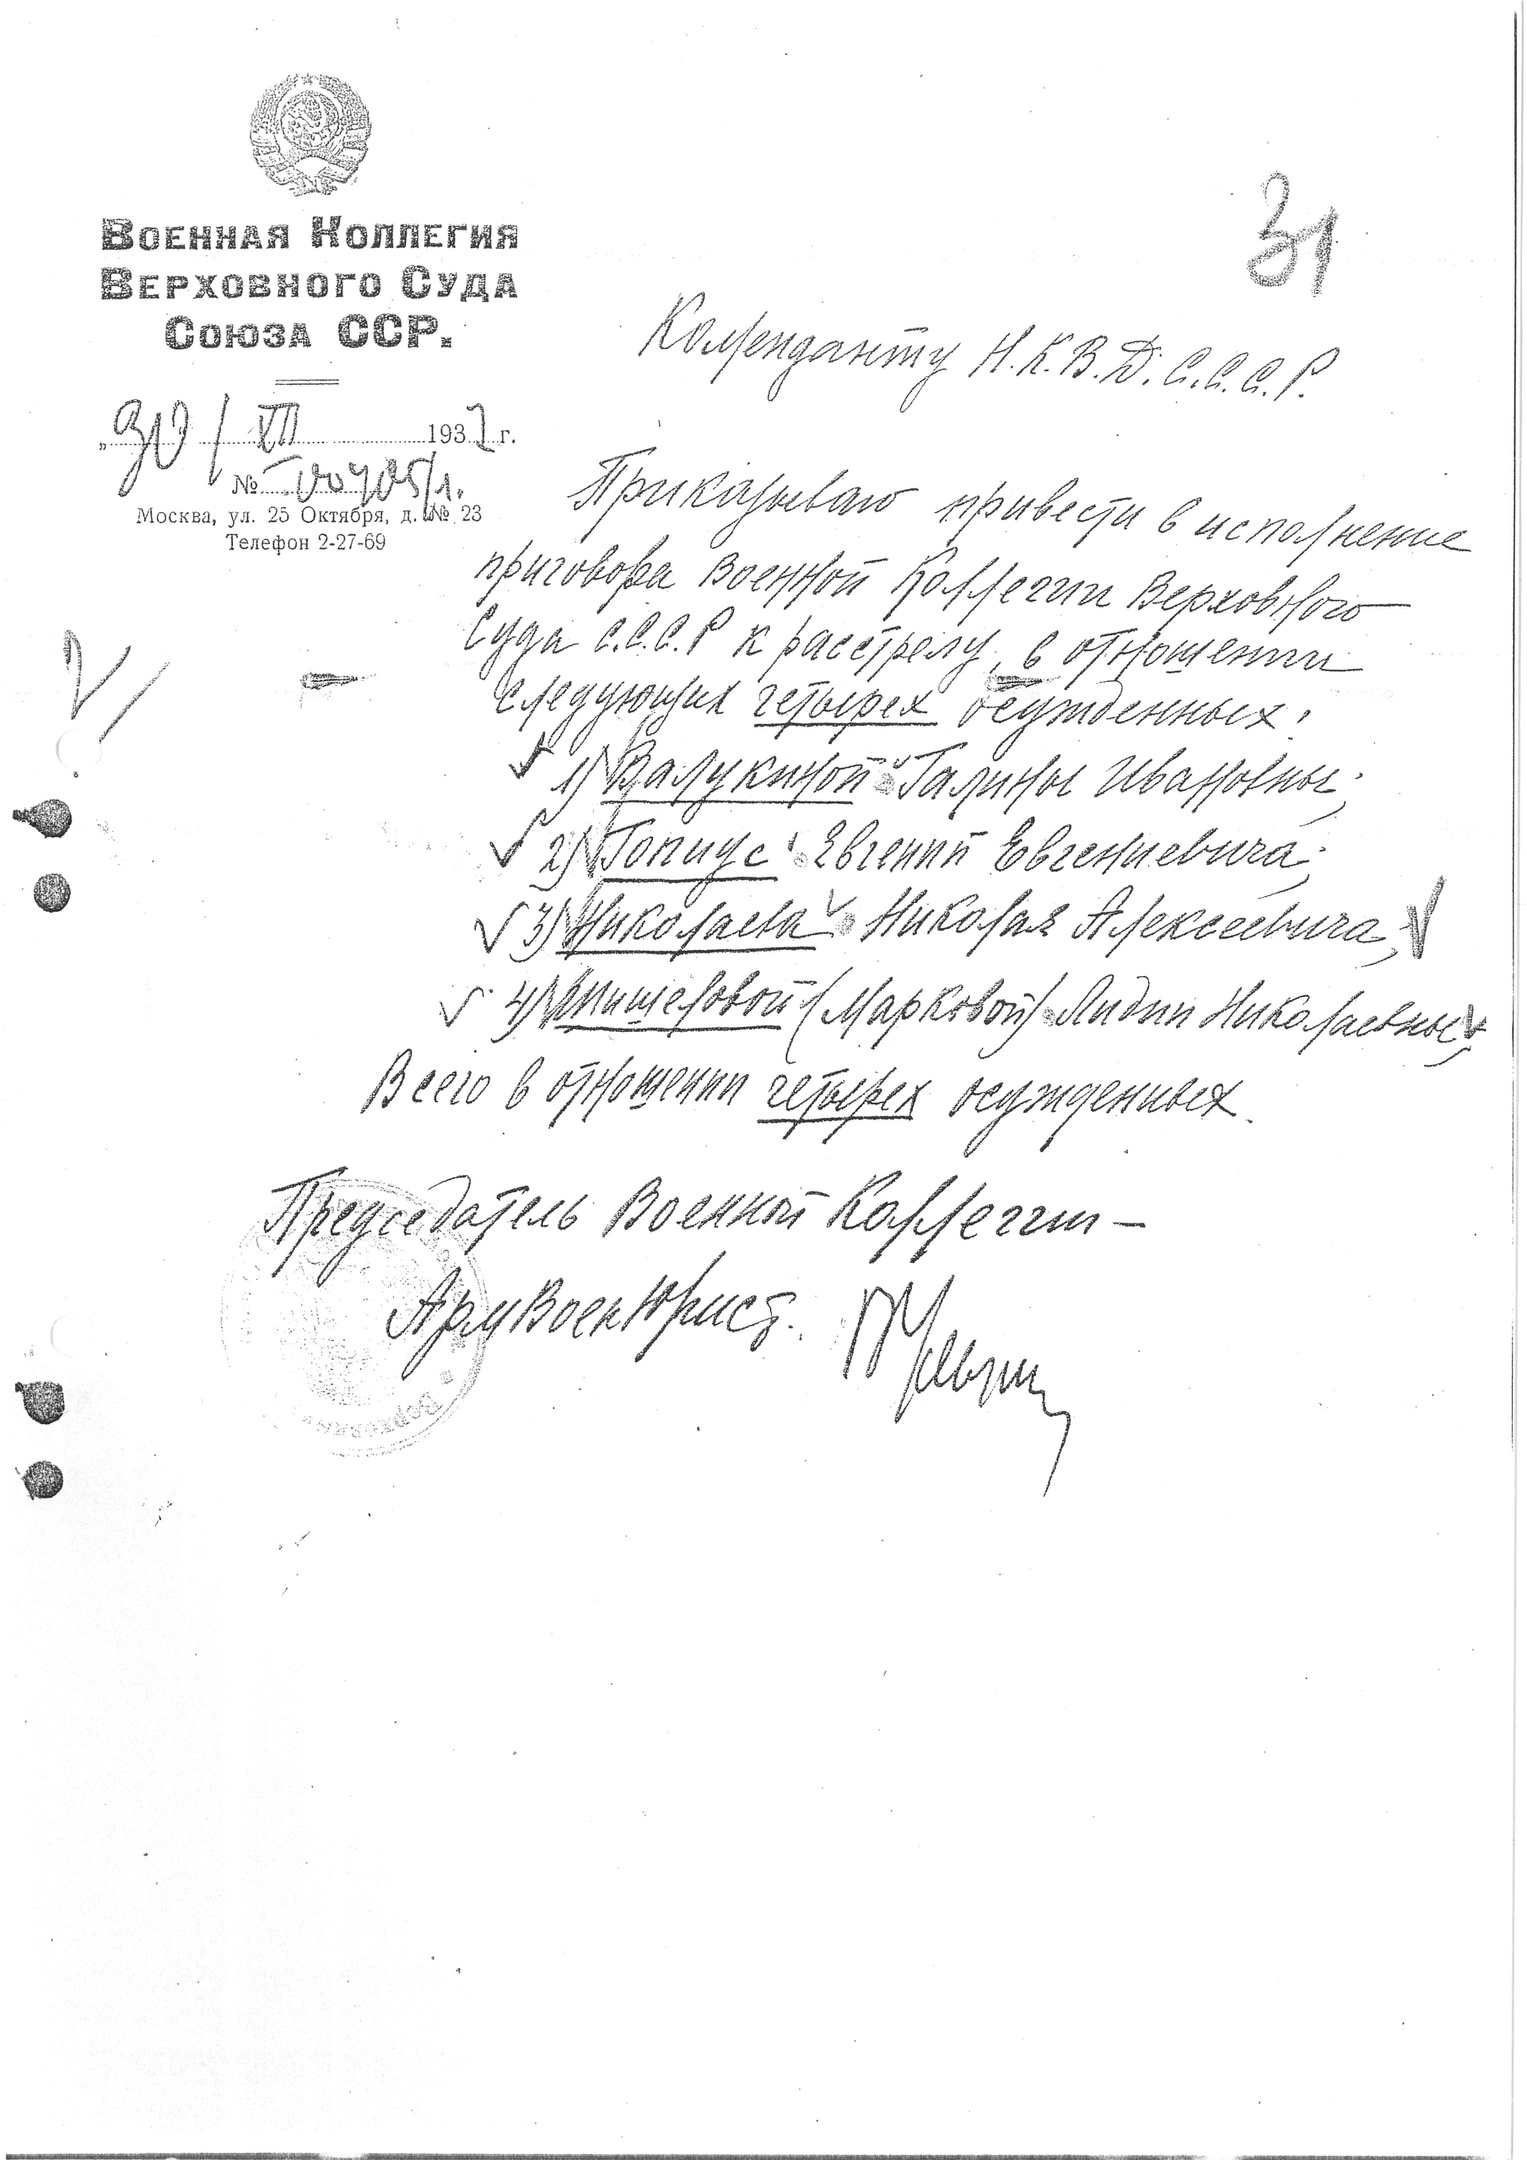 31
ВОЕННАЯ КОЛЛЕГИЯ
ВЕРХОВНОГО СУДА
СОЮЗА ССР.
Коменданту Н.К.В.Д. С.С.С.Р.
„30/ VII 1937 г.
№ 00405/1.
Москва, ул. 25 Октября, д. № 23
Телефон 2-27-69
Приказываю привести в исполнение
приговора Военной Коллегии Верховного
Суда С.С.С.Р к расстрелу, в отношении
следующих четырех осужденных:
1) Валукиной Галины Ивановны;
2) Гопиус Евгений Евгениевича;
3) Николаева Николая Алексеевича,
4) (Марковой) Лидии Николаевны,
Всего в отношении четырех осужденных.
Председатель Военной Коллегии –
АрмВоенЮрист.